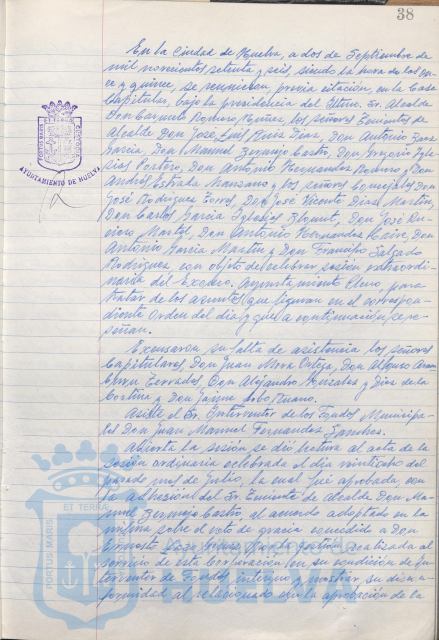 38
En la Ciudad de Huelva, a dos de Septiembre de
mil novecientos setenta y seis, siendo la hora de las on-
ce y quince, se reunieron previa citación, en la Casa
Capitular, bajo la presidencia del Iltmo. Sr. Alcalde
Don Carmelo Romero Núñez los señores Tenientes de
Alcalde Don José Luis Ruiz Díaz, Don Antonio
García Don Manuel Bermejo Castro, Don Gregorio Igle-
sias Don Antonio Hernández Romero y Don
Andrés Estrada Manzano y los señores Concejales Don
José Rodríguez Don José Vicente Díaz Martín,
Don Carlos García Iglesias Don José
Martel, Don Antonio Hernández Don
Antonio García Martín y Don Francisco Salgado
Rodríguez, con objeto de celebrar sesión extraordi-
naria del Excmo. Ayuntamiento Pleno, para
tratar de los asuntos que figuran en el correspon-
diente Orden del día y que a continuación se re-
señan.
Excusaron su falta de asistencia los señores
Capitulares Don Juan Mora Ortega, Don Alfonso
Terrades, Don Alejandro González y Díaz de la
Cortina y Don Jaime
Asiste el Sr. Interventor de los Fondos Municipa-
les Don Juan Manuel Fernández Sánchez.
Abierta la sesión se dió lectura al acta de la
sesión ordinaria celebrada el día veintiocho del
pasado mes de Julio, la cual fué aprobada, con
la del Sr. Teniente de Alcalde Don Ma-
nuel Bermejo Castro al acuerdo adoptado en la
misma sobre el voto de gracia concedido a Don
Ernesto por la gestión realizada al
servicio de esta Corporación en su condición de In-
terventor de Fondos interino y mostrar su discon-
formidad al relacionado con la aprobación de la
PORTUS MARIS
ET TERRAE
CUSTODIA
AYUNTAMIENTO DE HUELVA
ET TERRA
PORTUS MARIS
HUELVA